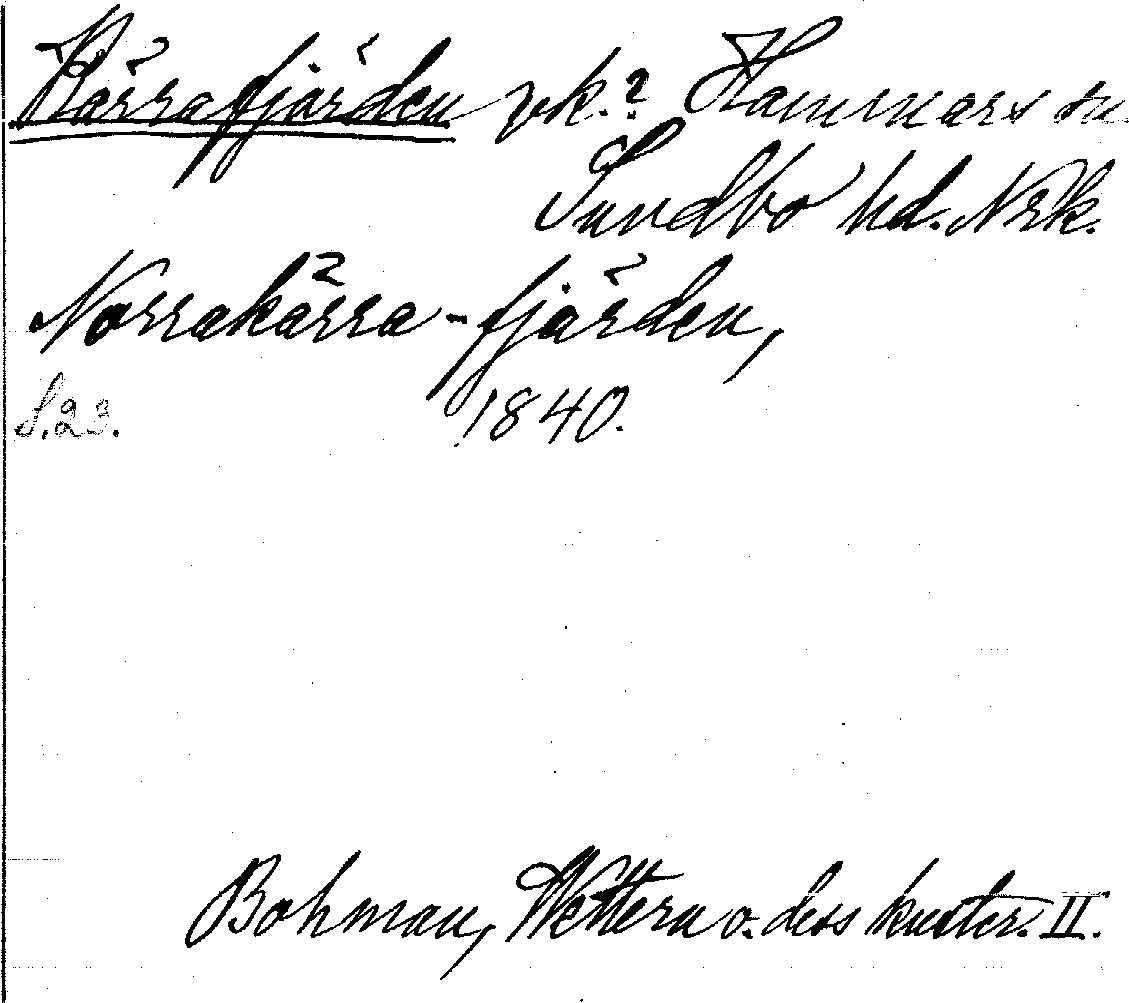 Kärrafjärden vk.? Hammars sn
Sundbo hd. Nrk.
Norrakärra-fjärden,
S. 23. 1840.
Bohman, Wettern o. dess kuster. II.